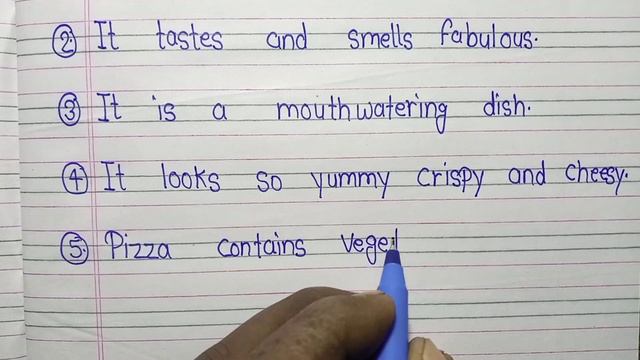 ② It tastes and smells fabulous.
③ It is a mouthwatering dish.
④ It looks so yummy crispy and cheesy.
⑤ Pizza contains veget